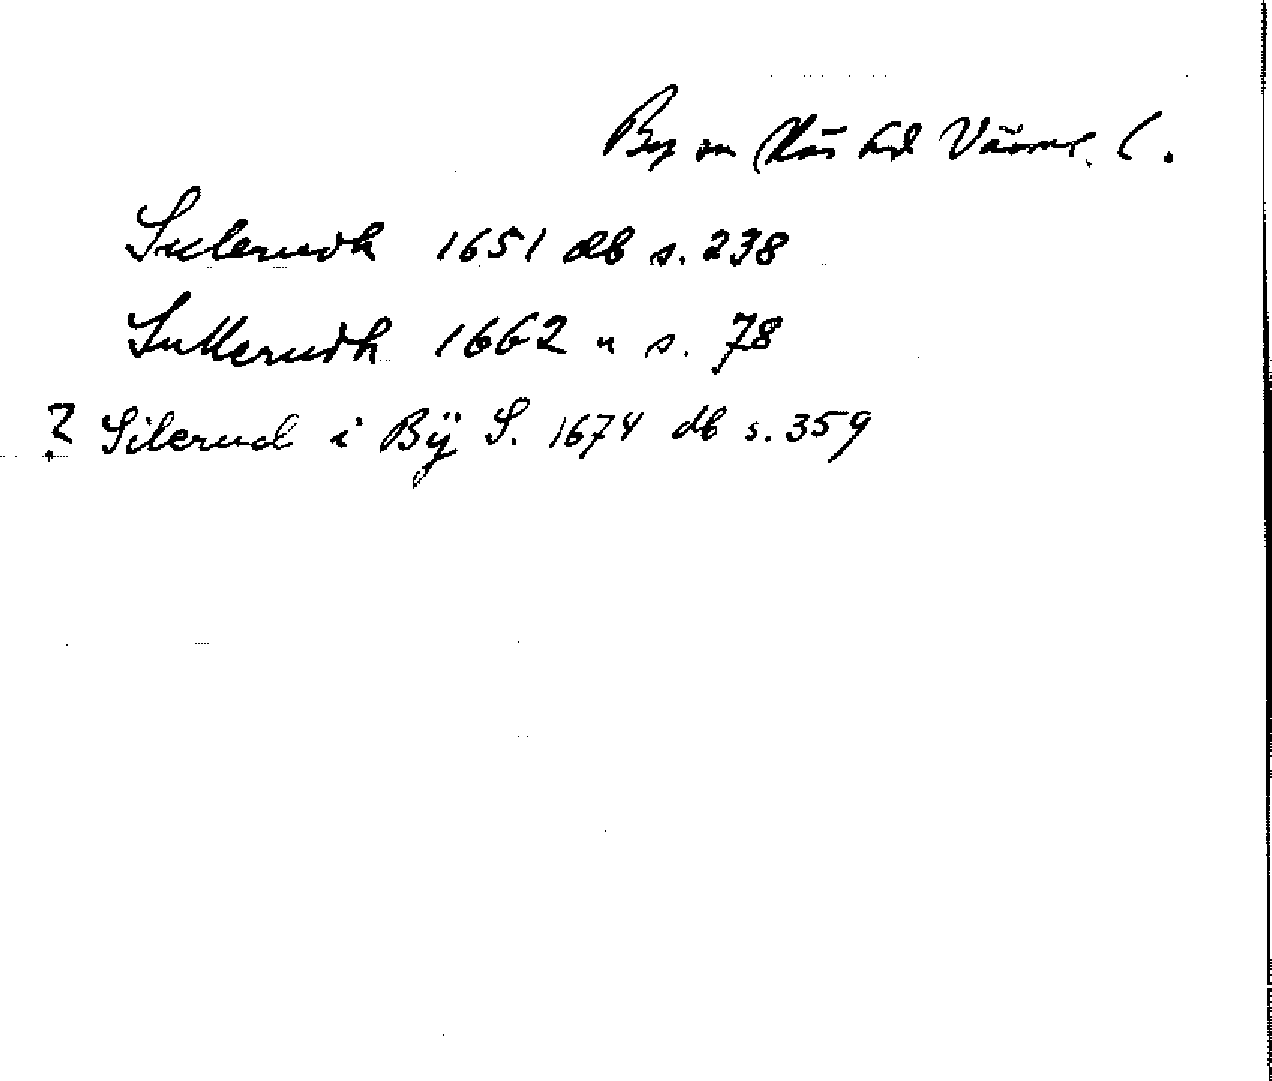 By sn Näs hd Värml. l.
Sulerudh 1651 db s. 238
Sullerudh 1662 " s. 78
? Silerud i Bÿ S. 1674 db s. 359